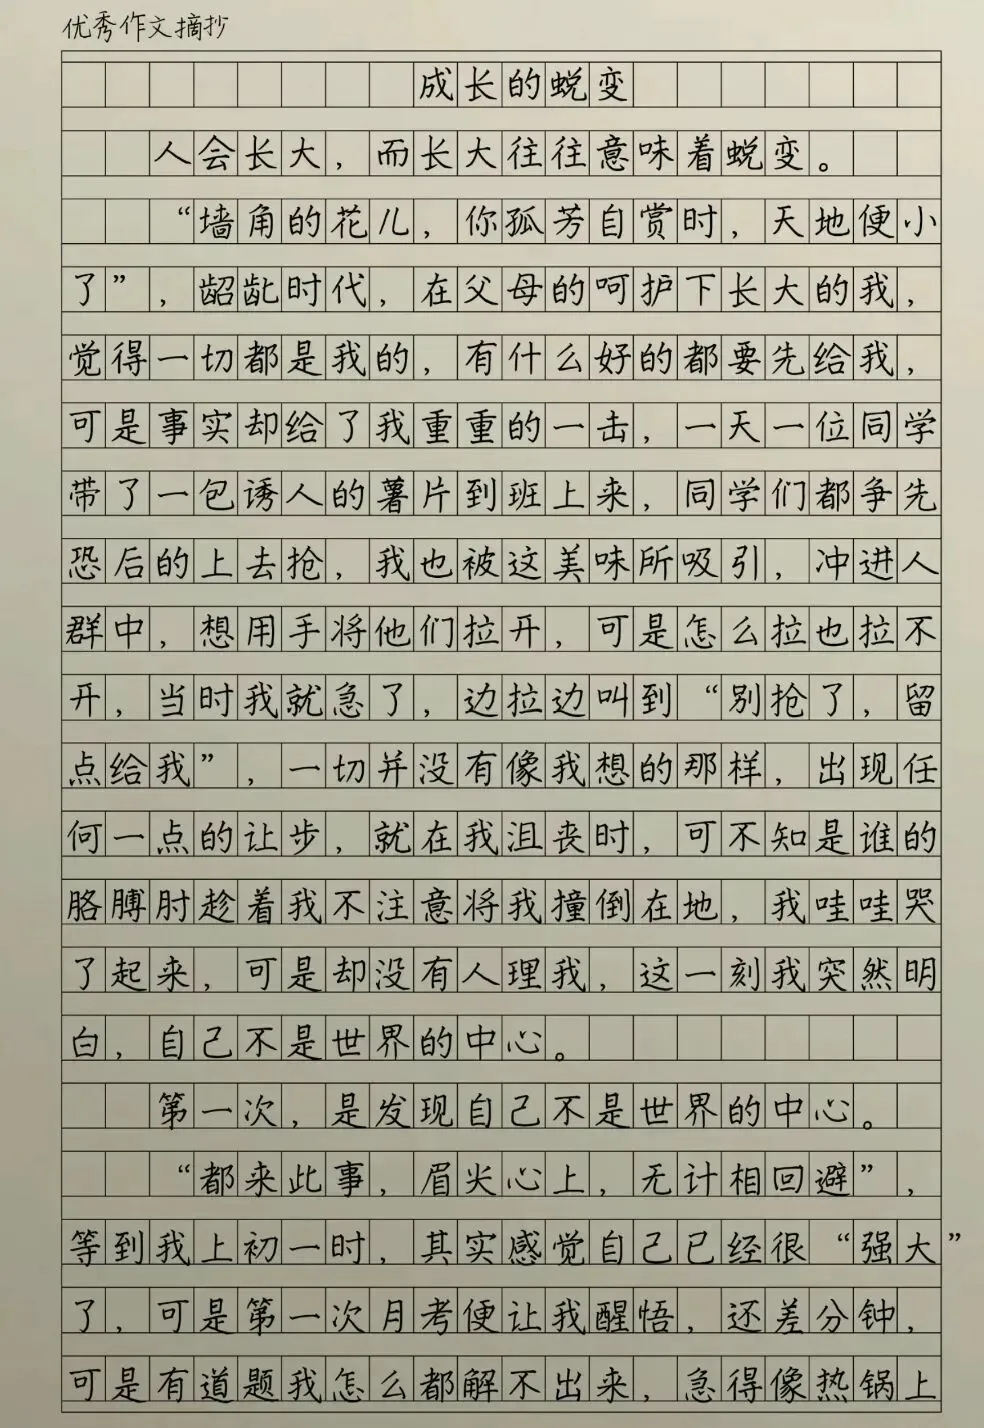 优秀作文摘抄
成长的蜕变
人会长大，而长大往往意味着蜕变。
“墙角的花儿，你孤芳自赏时，天地便小
了”，龆龀时代，在父母的呵护下长大的我，
觉得一切都是我的，有什么好的都要先给我，
可是事实却给了我重重的一击，一天一位同学
带了一包诱人的薯片到班上来，同学们都争先
恐后的上去抢，我也被这美味所吸引，冲进人
群中，想用手将他们拉开，可是怎么拉也拉不
开，当时我就急了，边拉边叫到“别抢了，留
点给我”，一切并没有像我想的那样，出现任
何一点的让步，就在我沮丧时，可不知是谁的
胳膊肘趁着我不注意将我撞倒在地，我哇哇哭
了起来，可是却没有人理我，这一刻我突然明
白，自己不是世界的中心。
第一次，是发现自己不是世界的中心。
“都来此事，眉尖心上，无计相回避”，
等到我上初一时，其实感觉自己已经很“强大”
了，可是第一次月考便让我醒悟，还差分钟，
可是有道题我怎么都解不出来，急得像热锅上